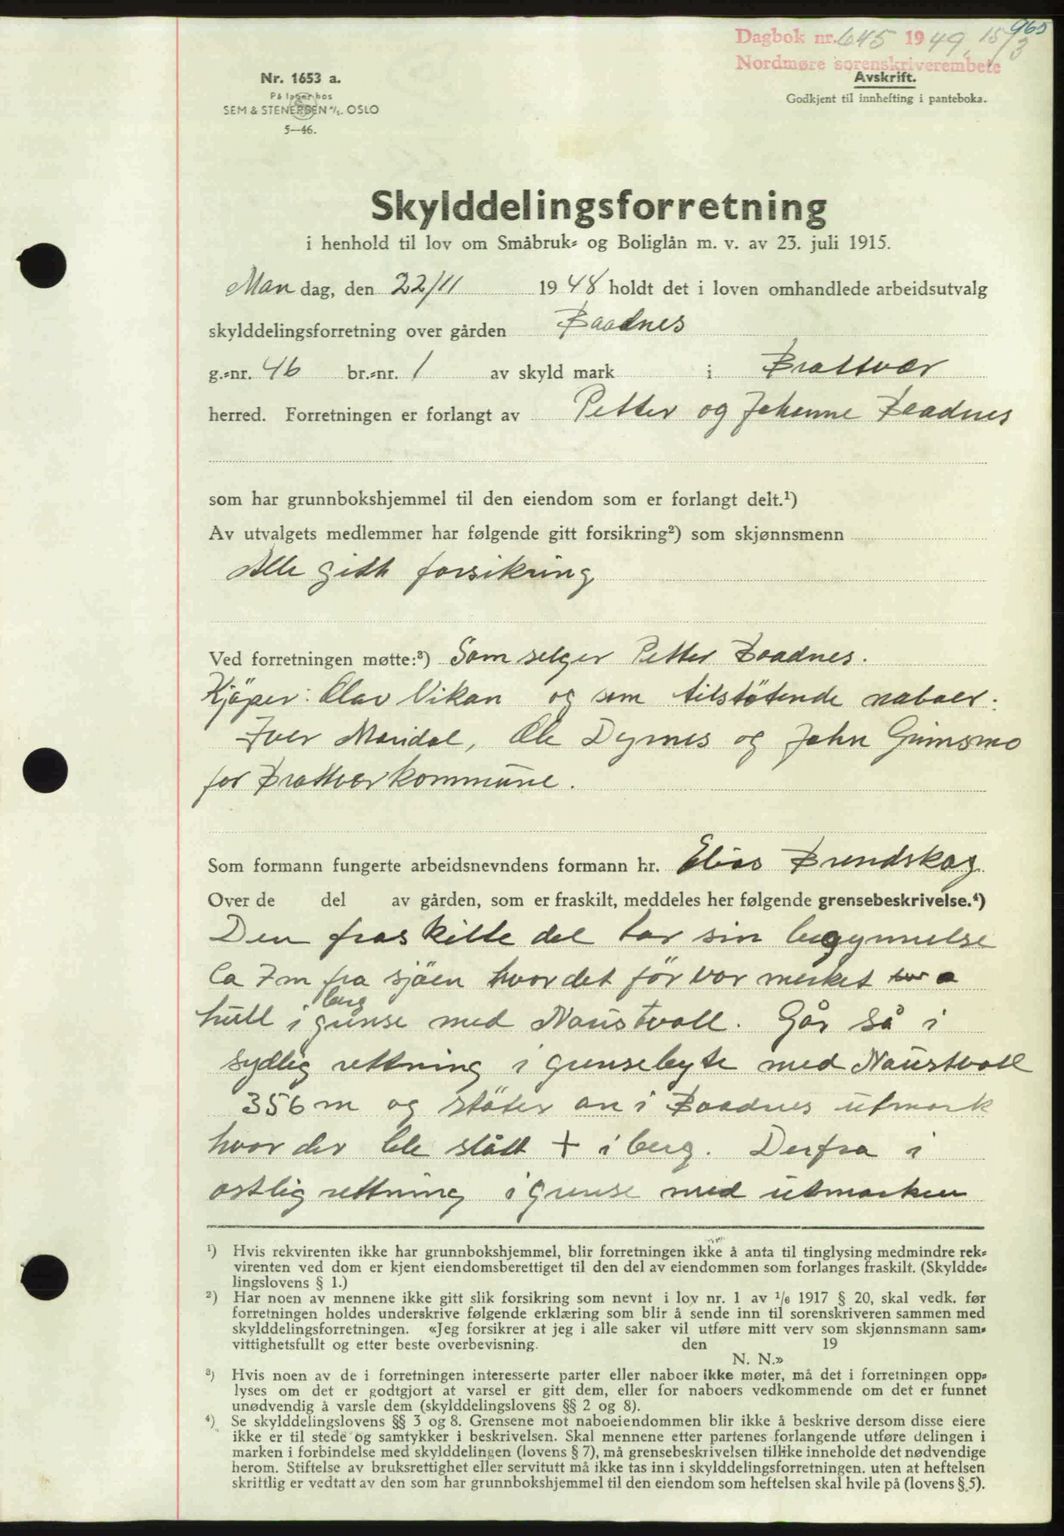 965
Dagbok nr. 645 1949, 15/3
Nordmøre sorenskriverembete
Nr. 1653 a.
På lager hos
SEM & STENERSEN A/S. OSLO
5—46.
Avskrift.
Godkjent til innhefting i panteboka.
Skylddelingsforretning
i henhold til lov om Småbruk- og Boliglån m. v. av 23. juli 1915.
Man dag, den 22/11 1948 holdt det i loven omhandlede arbeidsutvalg
skylddelingsforretning over gården Baadnes
g.-nr. 46 br.-nr. 1 av skyld mark i Brattvær
herred. Forretningen er forlangt av Petter og Johanne Baadnes
som har grunnbokshjemmel til den eiendom som er forlangt delt.¹)
Av utvalgets medlemmer har følgende gitt forsikring²) som skjønnsmenn
Alle gitt forsikring
Ved forretningen møtte:³) Som selger Petter Baadnes.
Kjöper: Olav Vikan og som tilstøtende naboer:
Iver Maridal, Ole Dyrnes og John Grimsmo
for Brattvær kommune.
Som formann fungerte arbeidsnevndens formann hr. Elias Brendskag
Over de del av gården, som er fraskilt, meddeles her følgende grensebeskrivelse.⁴)
Den fraskilte del tar sin begynnelse
Ca 7 m fra sjöen hvor det för var merket a
hull i berg grense med Naustvoll. Går så i
sydlig rettning i grensebyte med Naustvoll
356 m og stöter an i Baadnes utmark
hvor der ble slått + i berg. Derfra i
østlig rettning i grense med utmarken
¹) Hvis rekvirenten ikke har grunnbokshjemmel, blir forretningen ikke å anta til tinglysing medmindre rek-
virenten ved dom er kjent eiendomsberettiget til den del av eiendommen som forlanges fraskilt. (Skyldde-
lingslovens § 1.)
²) Har noen av mennene ikke gitt slik forsikring som nevnt i lov nr. 1 av 1/6 1917 § 20, skal vedk. før
forretningen holdes underskrive følgende erklæring som blir å sende inn til sorenskriveren sammen med
skylddelingsforretningen. «Jeg forsikrer at jeg i alle saker vil utføre mitt verv som skjønnsmann sam-
vittighetsfullt og etter beste overbevisning. den 19
N. N.»
³) Hvis noen av de i forretningen interesserte parter eller naboer ikke møter, må det i forretningen opp-
lyses om det er godtgjort at varsel er gitt dem, eller for naboers vedkommende om det er funnet
unødvendig å varsle dem (skylddelingslovens §§ 2 og 8).
⁴) Se skylddelingslovens §§ 3 og 8. Grensene mot naboeiendommen blir ikke å beskrive dersom disse eiere
ikke er til stede og samtykker i beskrivelsen. Skal mennene etter partenes forlangende utføre delingen i
marken i forbindelse med skylddelingen (lovens § 7), må grensebeskrivelsen tillike inneholde det nødvendige
herom. Stiftelse av bruksrettighet eller servitutt må ikke tas inn i skylddelingsforretningen, uten at heftelsen
skriftlig er vedtatt av den som har grunnbokshjemmel til den eiendom som heftelsen skal hvile på (lovens § 5).